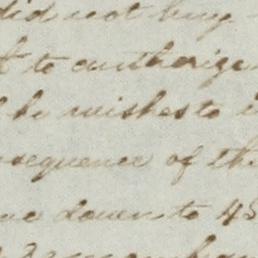 did not buy
t to authorize
he wishes to
sequence of the
down to 45